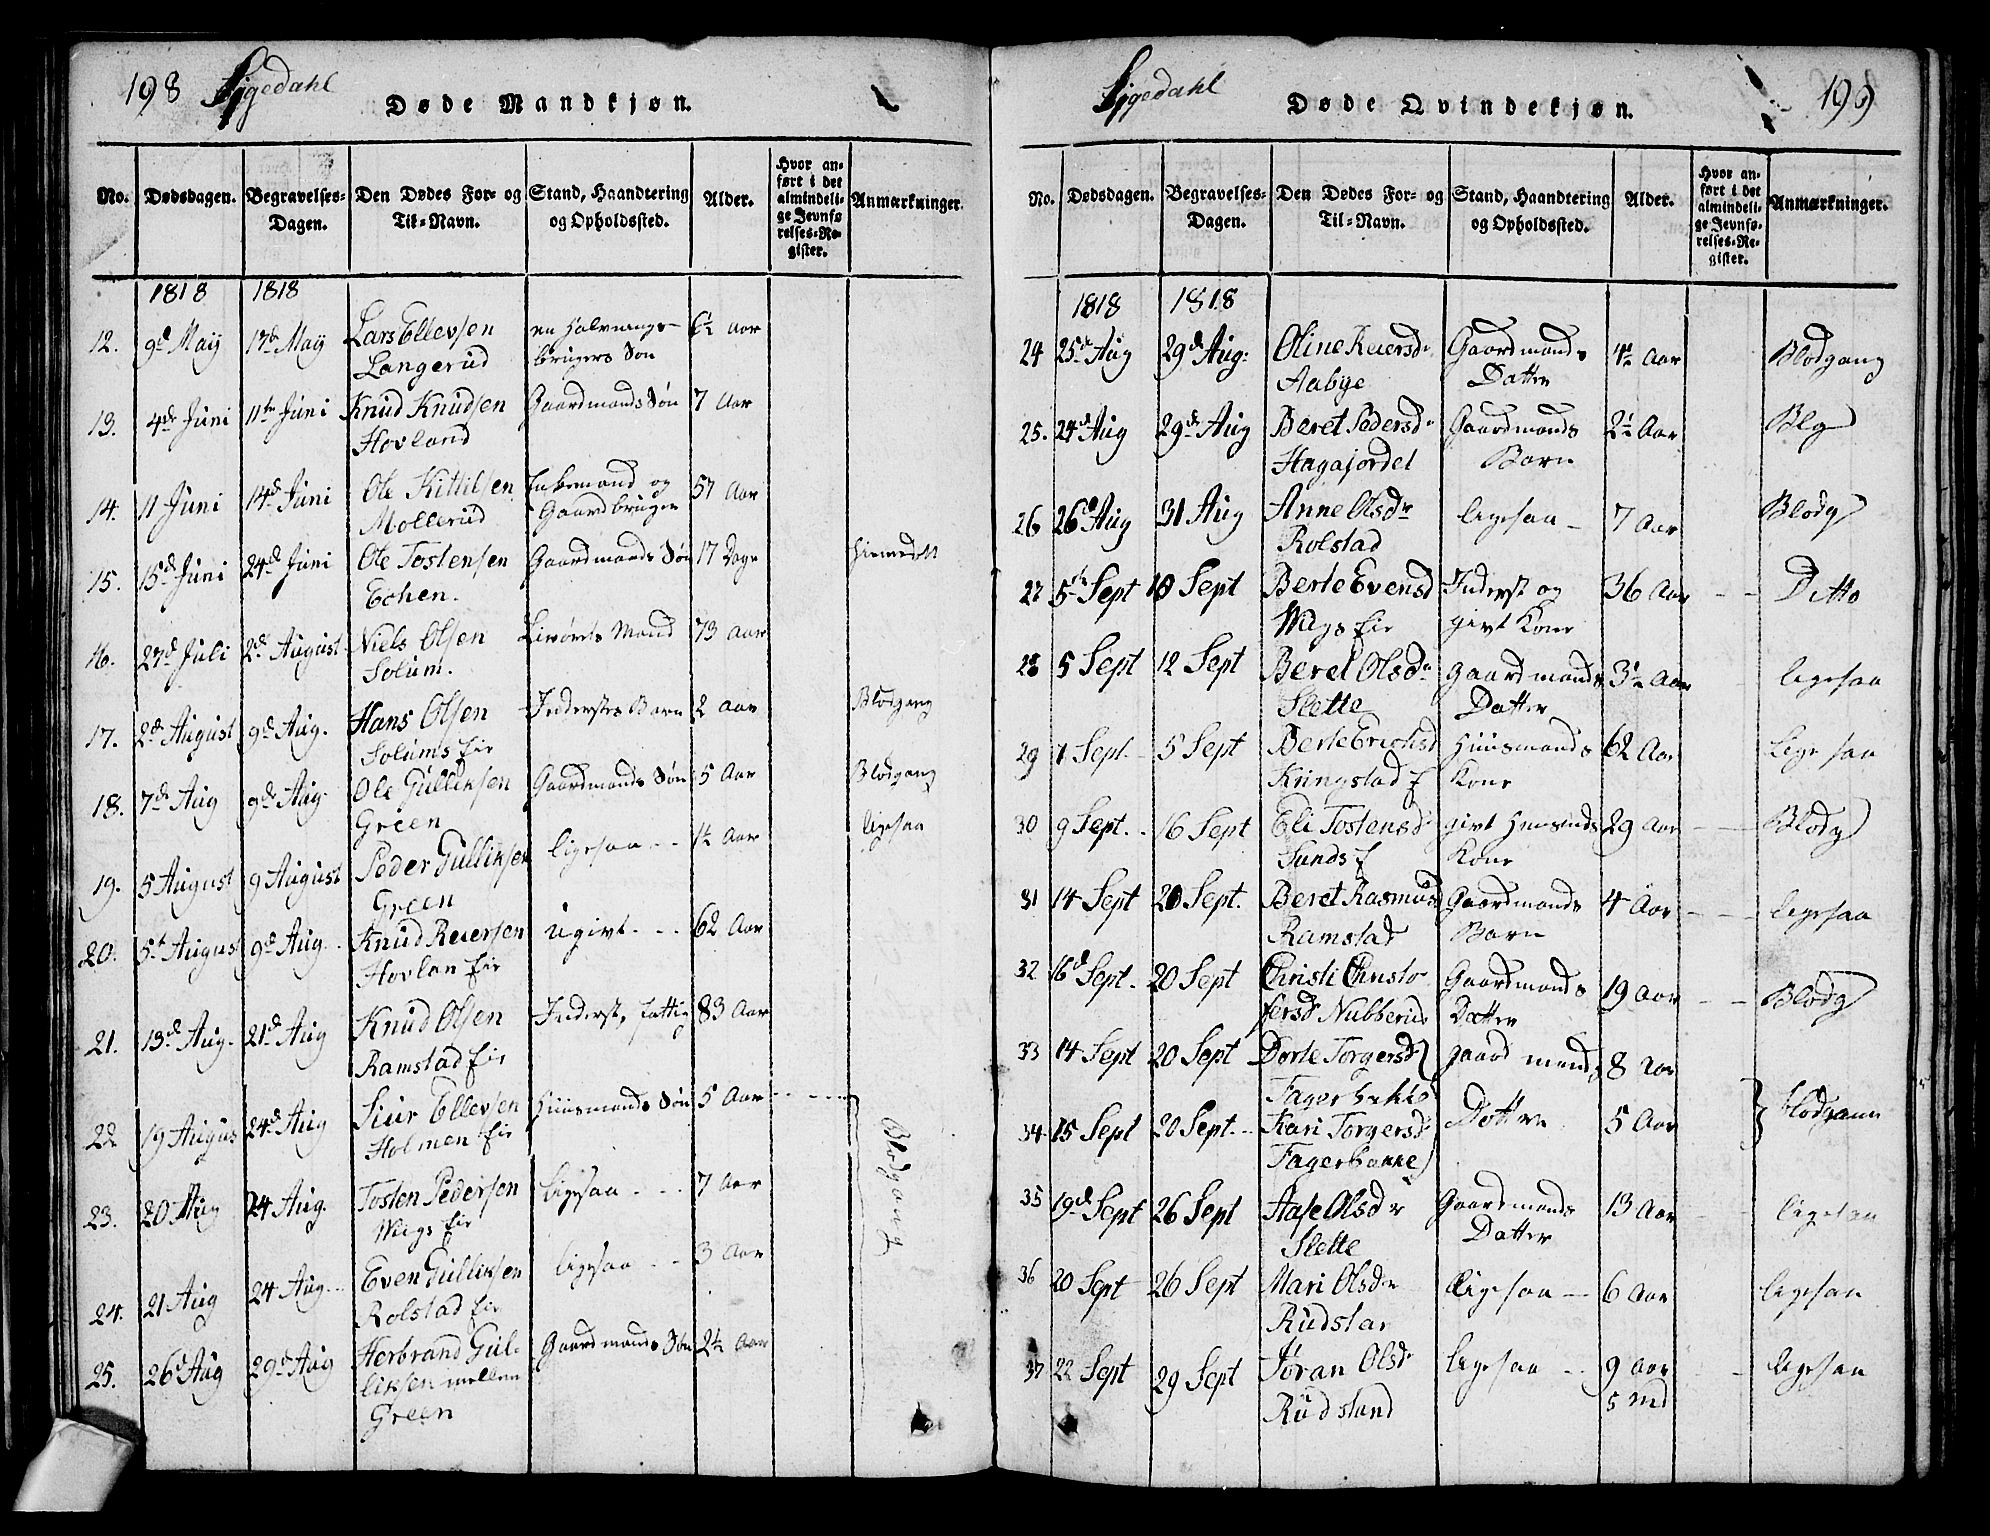 198 Sigedahl
Døde Mandkjøn.
No. Dødsdagen. Begravelses-Dagen. Den Dødes For- og Til-Navn. Stand, Haandtering og Opholdssted. Alder. Hvor anført i det almindelige Jevnførelses-Register. Anmærkninger.
1818 1818
12. 9d Maij 17de Maij Lars Ellevsen en Halvnings- 6½ Aar
Langerud brugers Søn
13. 4de Juni 11te Juni Knud Knudsen Gaardmands Søn 7 Aar
Hovland
14. 11 Juni 14d Juni Ole Kittilsen Enkemand og 57 Aar
Mollerud Gaardbruger
15. 15d Juni 24d Juni Ole Tostensen Gaardmands Søn 17 Dage
Echen.
16. 27d Juli 2d August Niels Olsen Livørets Mand 73 Aar
Solum.
17. 2d August 9d Aug. Hans Olsen Inderstes Barn 2 Aar Blodgang
Solums Eie
18. 7de Aug 9de Aug. Ole Gulliksen Gaardmands Søn 5 Aar Blodgang
Green
19. 5 August 9 August Peder Gulliksen ligesaa 1½ Aar ligesaa
Green
20. 5t August 9d Aug. Knud Reiersen ugivt 62 Aar
Hovlan Eie
21. 13d Aug. 21d Aug Knud Olsen Inderst, fattig 83 Aar
Ramstad Eie
22 19 Augus 24d Aug Siur Ellevsen Huusmands Søn 5 Aar
Holmen Eie
Blodgang
23. 20 Aug 24 Aug. Tosten Pedersen ligesaa 7 Aar
Wiigs Eie
24. 21 Aug 24 Aug. Even Gulliksen ligesaa 3 Aar
Rolstad Eie
25. 26d Aug 29d Aug Herbrand Gul- Gaardmands Søn 2½ Aar
liksen mellem
Green
Sigedahl 199
Døde Qvindekjøn.
No. Dødsdagen. Begravelses-Dagen. Den Dødes For- og Til-Navn. Stand, Haandtering og Opholdssted. Alder. Hvor anført i det almindelige Jevnførelses-Register. Anmærkninger.
1818 1818
24 25de Aug 29de Aug: Oline Reiersdr Gaardmands 4½ Aar Blodgang
Aabye Datter
25. 24d Aug 29de Aug Beret Pedersdr Gaardmands 2½ Aar Blg
Hagajordet Barn
26 26d Aug 31 Aug Anne Olsdr ligesaa 7 Aar Blodg
Rolstad
27 5te Sept 10 Sept Berte Evensd Inderst og 36 Aar Ditto
Wiigs Eie givt Kone
28 5 Sept 12 Sept Beret Olsdr gaardmands 3½ Aar ligesaa
Slette Datter
29 1 Sept. 5 Sept Berte Erichsd Huusmands 62 Aar ligesaa
Kringstad E Kone
30 9 Sept. 16 Sept Eli Tostensd givt Huusmds 29 Aar Blodg
Sunds E Kone
31 14 Sept 20 Sept. Beret Rasmusd Gaardmands 4 Aar ligesaa
Ramstad Barn
32 16d Sept. 20 Sept Christi Christo Gaardmands 19 Aar Blodg
fersd Nubberud Datter
33 14 Sept 20 Sept Dorte Torgersd gaardmands 8 Aar
Fagerbakke
34. 15 Sept 20 Sept. Kari Torgersd Datter 5 Aar Blodgann
Fagerbakke
35 19d Sept 26 Sept Aase Olsdr Gaardmands 13 Aar ligesaa
Slette Datter
36 20 Sept 26 Sept Mari Olsdr ligesaa 6 Aar ligesaa
Rudstar
37 22 Sept 29 Sept Jøran Olsdr ligesaa 9 Aar ligesaa
Rudstand 5 Md